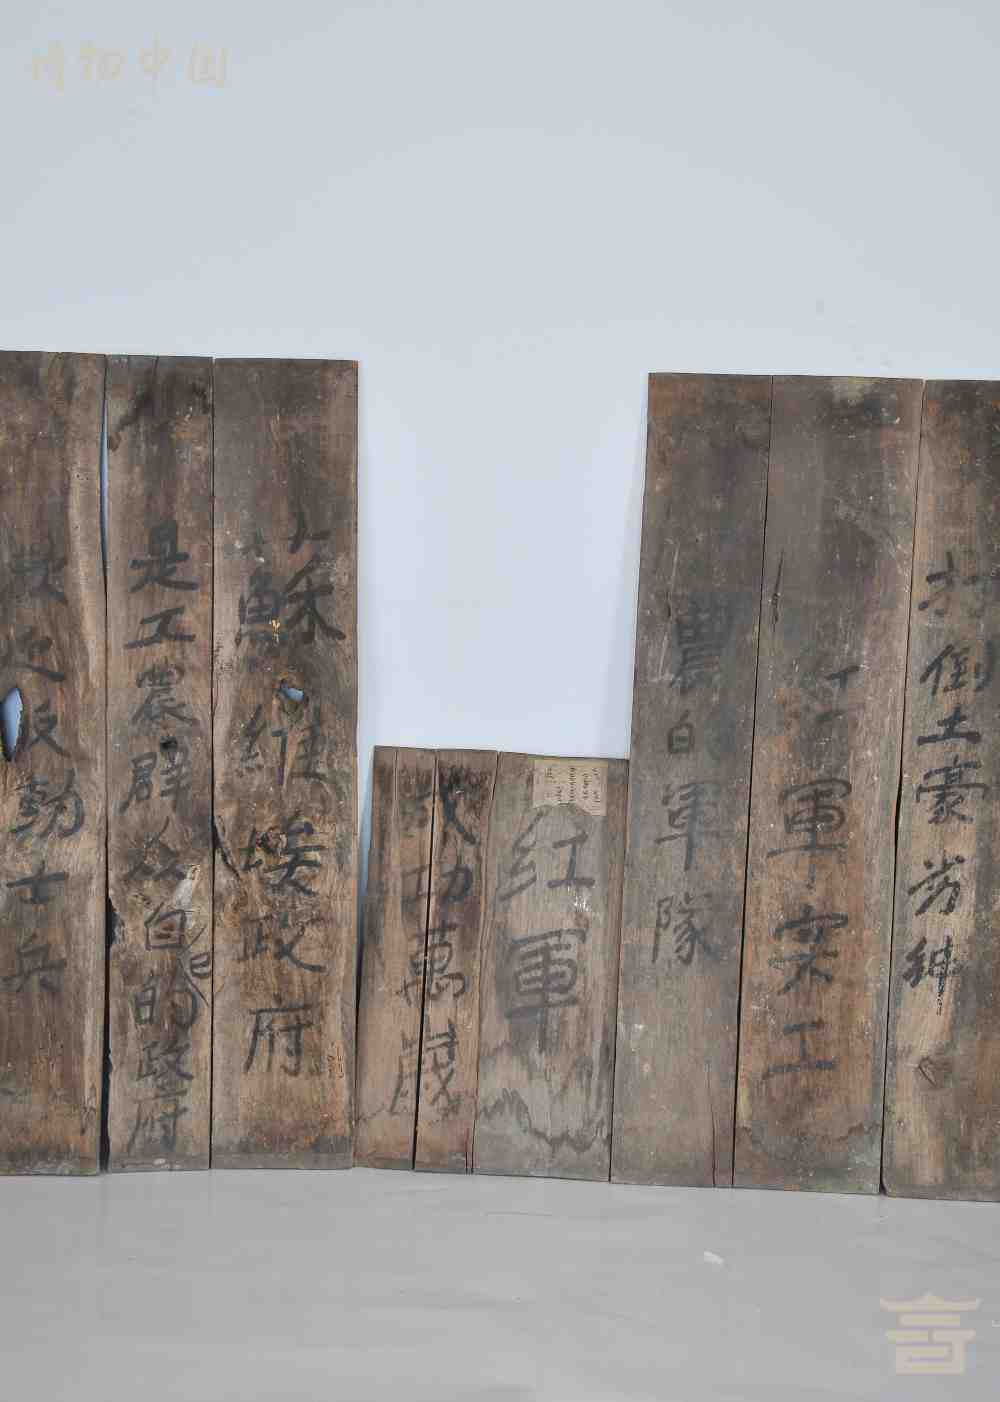 博物中国
打倒土豪劣绅
红軍家工
農白軍隊
红軍
成功萬歲
蘇維埃政府
是工農群众自己的政府
欢迎反動士兵